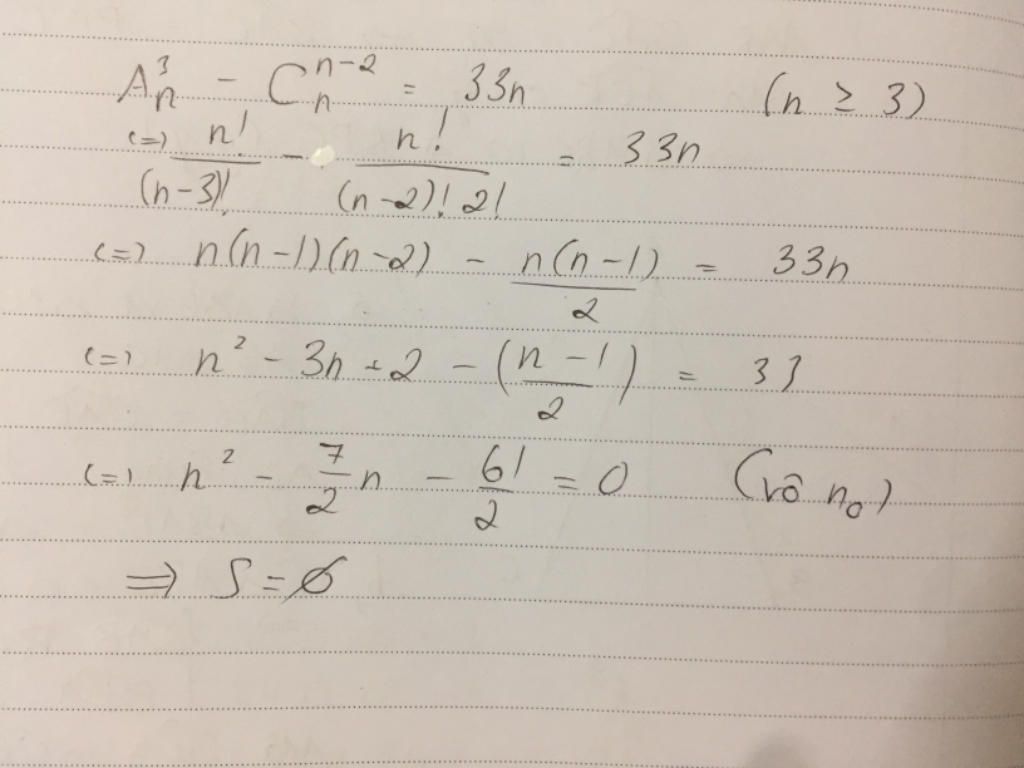 A_n^3 - C_n^{n-2} = 33n (n ≥ 3)
(=) n!/(n-3)! - n!/(n-2)! 2! = 33n
(=) n(n-1)(n-2) - n(n-1)/2 = 33n
(=) n² - 3n + 2 - (n-1/2) = 33
(=) n² - 7/2 n - 61/2 = 0 (vô n₀)
⇒ S = ∅